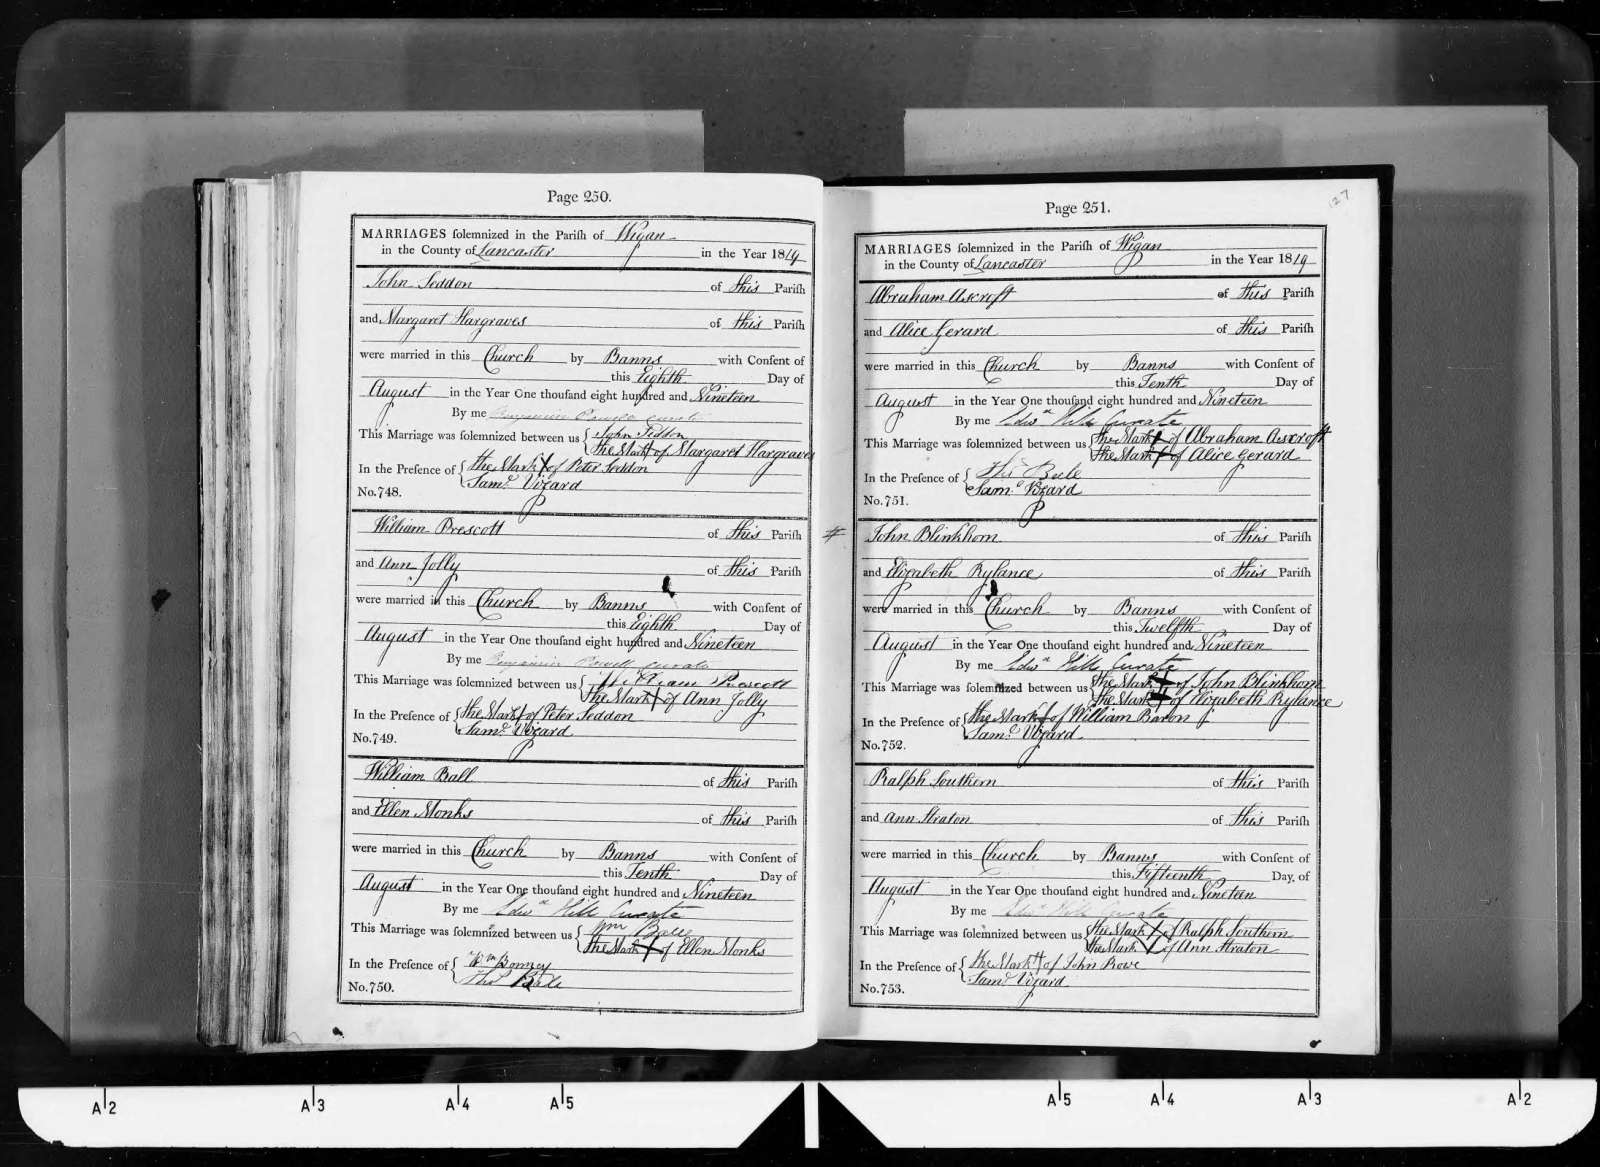 Page 250.
MARRIAGES solemnized in the Parish of Wigan
in the County of Lancaster in the Year 1819
John Seddon of this Parish
and Margaret Hargraves of this Parish
were married in this Church by Banns with Consent of
this Eighth Day of
August in the Year One thousand eight hundred and Nineteen
By me Benjamin Powell Curate
This Marriage was solemnized between us { John Seddon
the Mark X of Margaret Hargraves
In the Presence of { the Mark X of Peter Seddon
Saml. Vizard
No. 748.
William Prescott of this Parish
and Ann Jolly of this Parish
were married in this Church by Banns with Consent of
this Eighth Day of
August in the Year One thousand eight hundred and Nineteen
By me Benjamin Powell Curate
This Marriage was solemnized between us { William Prescott
the Mark X of Ann Jolly
In the Presence of { the Mark X of Peter Seddon
Saml. Vizard
No. 749.
William Ball of this Parish
and Ellen Monks of this Parish
were married in this Church by Banns with Consent of
this Tenth Day of
August in the Year One thousand eight hundred and Nineteen
By me Edwd Hill Curate
This Marriage was solemnized between us { Wm Ball
the Mark X of Ellen Monks
In the Presence of { Wm Bonney
Thos
No. 750.
27
Page 251.
MARRIAGES solemnized in the Parish of Wigan
in the County of Lancaster in the Year 1819
Abraham Ascroft of this Parish
and Alice Gerard of this Parish
were married in this Church by Banns with Consent of
this Tenth Day of
August in the Year One thousand eight hundred and Nineteen
By me Edwd Hill Curate
This Marriage was solemnized between us { the Mark X of Abraham Ascroft
the Mark X of Alice Gerard
In the Presence of { Thos
Saml. Vizard
No. 751.
# John Blinkhorn of this Parish
and Elizabeth Rylance of this Parish
were married in this Church by Banns with Consent of
this Twelfth Day of
August in the Year One thousand eight hundred and Nineteen
By me Edwd Hill Curate
This Marriage was solemnized between us { the Mark X of John Blinkhorn
the Mark X of Elizabeth Rylance
In the Presence of { the Mark X of William Baron
Saml. Vizard
No. 752.
Ralph Southern of this Parish
and Ann Straton of this Parish
were married in this Church by Banns with Consent of
this Fifteenth Day of
August in the Year One thousand eight hundred and Nineteen
By me Edwd Hill Curate
This Marriage was solemnized between us { the Mark X of Ralph Southern
the Mark X of Ann Straton
In the Presence of { the Mark X of John Rowe
Saml. Vizard
No. 753.
A|2 A|3 A|4 A|5 A|5 A|4 A|3 A|2